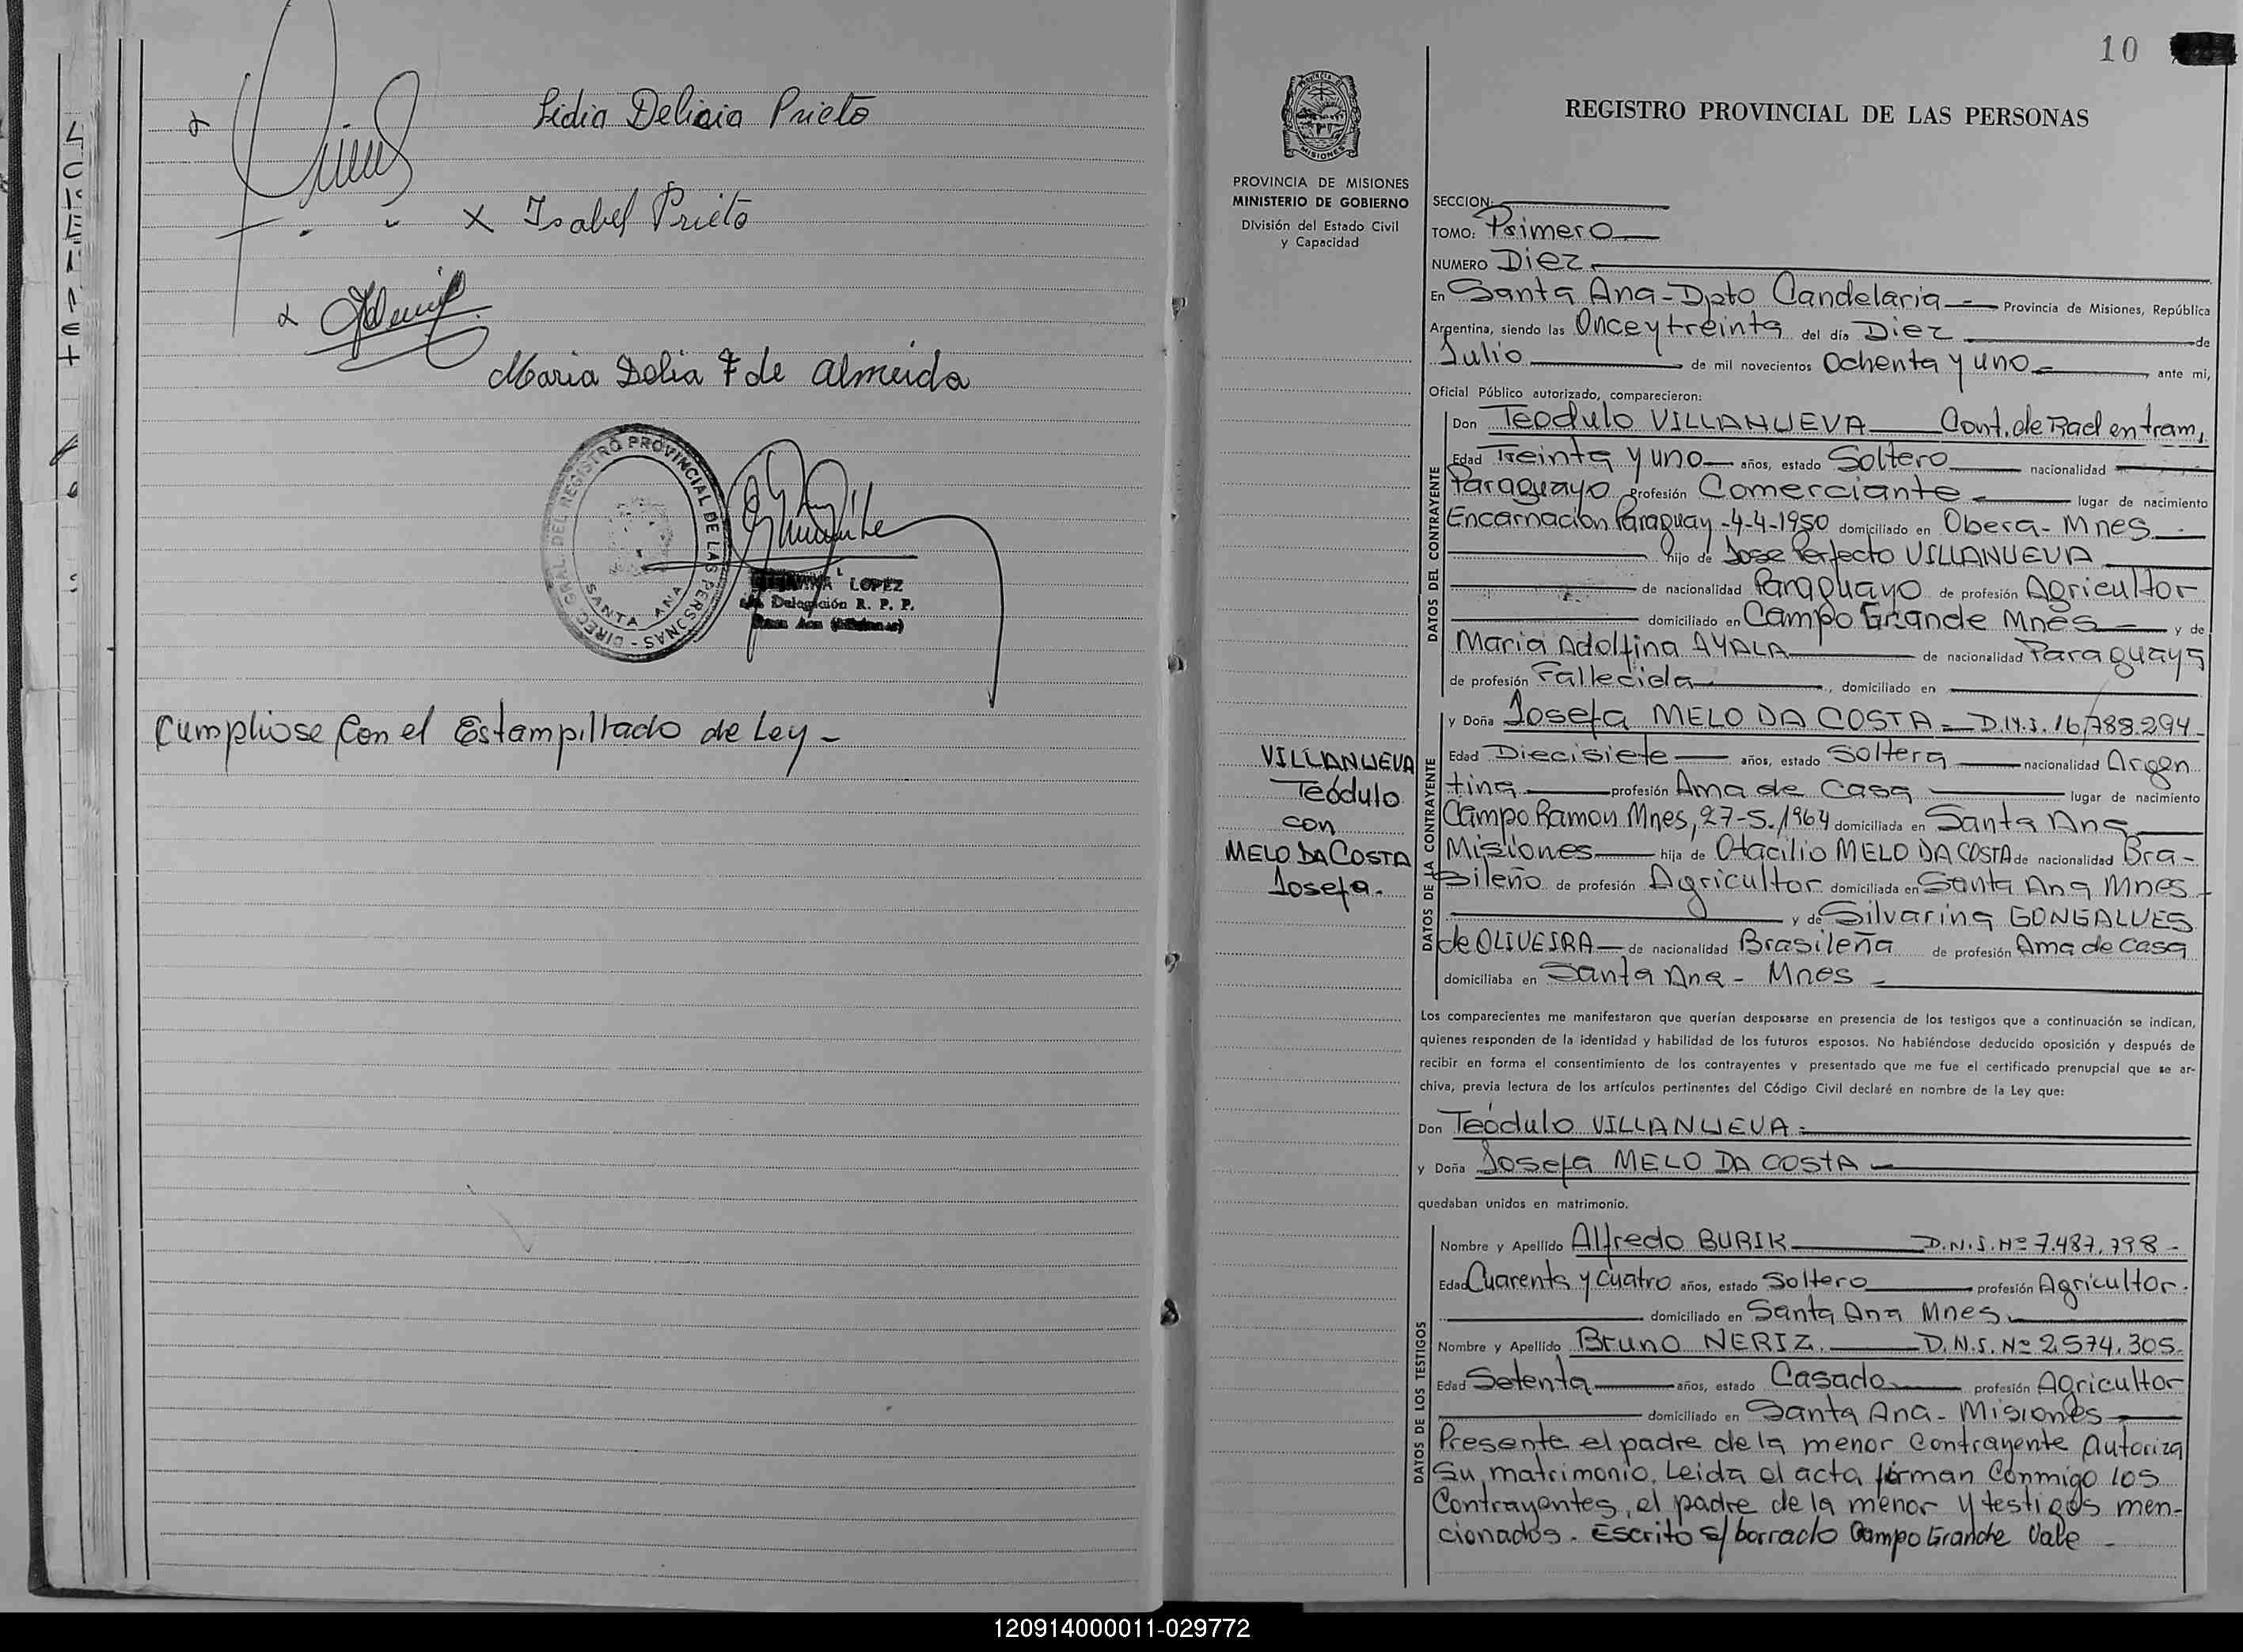 Lidia Delicia Prieto
X Isabel Prieto
Maria Delia F de Almeida
DIREC. GRAL. DEL REGISTRO PROVINCIAL DE LAS PERSONAS - SANTA ANA
LOPEZ
Delegación R. P. P.
Santa Ana (Misiones)
Cumpliose Con el Estampillado de Ley -
10
PROVINCIA DE MISIONES
MINISTERIO DE GOBIERNO
División del Estado Civil
y Capacidad
VILLANUEVA
Teódulo
con
MELO DA COSTA
Josefa.
REGISTRO PROVINCIAL DE LAS PERSONAS
SECCION:
TOMO: Primero
NUMERO Diez
En Santa Ana - Dpto Candelaria - Provincia de Misiones, República
Argentina, siendo las Once y treinta del día Diez de
Julio de mil novecientos Ochenta y uno - ante mi,
Oficial Público autorizado, comparecieron:
DATOS DEL CONTRAYENTE
Don Teodulo VILLANUEVA Cont. de Rad en tram.
Edad Treinta y uno años, estado Soltero nacionalidad
Paraguayo Profesión Comerciante lugar de nacimiento
Encarnacion Paraguay - 4-4-1950 domiciliado en Obera - Mnes.
hijo de Jose Perfecto VILLANUEVA
de nacionalidad Paraguayo de profesión Agricultor
domiciliado en Campo Grande Mnes y de
Maria Adolfina AYALA de nacionalidad Paraguaya
de profesión Fallecida, domiciliado en
DATOS DE LA CONTRAYENTE
y Doña Josefa MELO DA COSTA - D.N.I. 16,788.294 -
Edad Diecisiete años, estado Soltera nacionalidad Argen
tina profesión Ama de Casa lugar de nacimiento
Campo Ramon Mnes, 27-5-1964 domiciliada en Santa Ana
Misiones hija de Otacilio MELO DA COSTA de nacionalidad Bra-
sileño de profesión Agricultor domiciliada en Santa Ana Mnes
y de Silvarina GONGALVES
de OLIVEIRA de nacionalidad Brasileña de profesión Ama de Casa
domiciliaba en Santa Ana - Mnes -
Los comparecientes me manifestaron que querían desposarse en presencia de los testigos que a continuación se indican,
quienes responden de la identidad y habilidad de los futuros esposos. No habiéndose deducido oposición y después de
recibir en forma el consentimiento de los contrayentes y presentado que me fue el certificado prenupcial que se ar-
chiva, previa lectura de los artículos pertinentes del Código Civil declaré en nombre de la Ley que:
Don Teódulo VILLANUEVA
y Doña Josefa MELO DA COSTA
quedaban unidos en matrimonio.
DATOS DE LOS TESTIGOS
Nombre y Apellido Alfredo BURIK D.N.I. Nº 7.487.798 -
Edad Cuarenta y Cuatro años, estado Soltero profesión Agricultor
domiciliado en Santa Ana Mnes
Nombre y Apellido Bruno NERIZ. D.N.I. Nº 2.574.305 -
Edad Setenta años, estado Casado profesión Agricultor
domiciliado en Santa Ana - Misiones
Presente el padre de la menor Contrayente Autoriza
Su matrimonio. Leida el acta firman Conmigo los
Contrayentes, el padre de la menor y testigos men-
cionados. Escrito s/ borrado Campo Grande Vale -
120914000011-029772